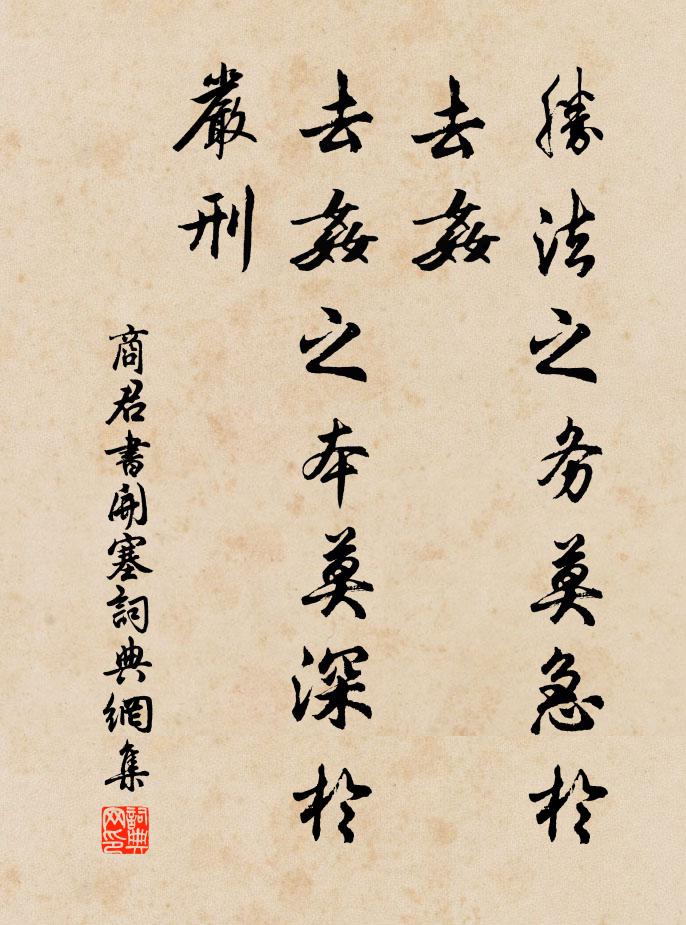 勝法之务莫急於
去姦
去姦之本莫深於
嚴刑
商君書開塞詞典網集
詞典网印